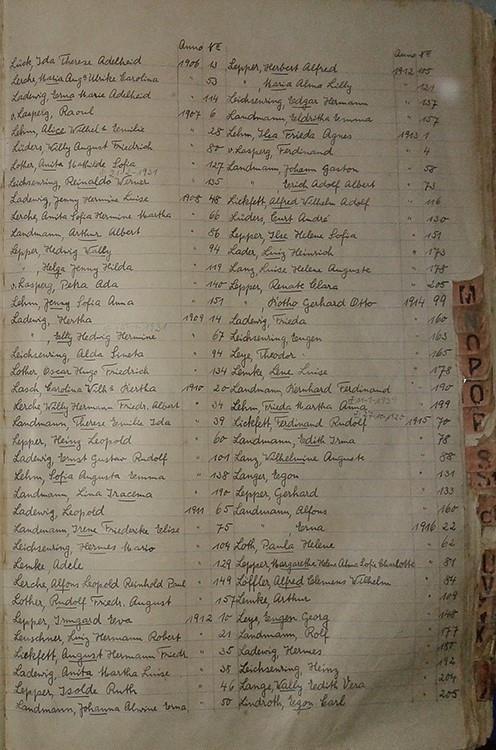 Anno № Anno №
Lück, Ida Therese Adelheid 1906 13
Lerche, Maria Aug^e Ulrike Carolina " 53
Ladewig, Erna Marie Adelheid " 114
v. Lasperg, Raoul 1907 6
Lehm, Alice Wilhel^e Emilie " 28
Lüders, Willy August Friedrich " 80
Lother, Anita Mathilde Sofia " 127
Leichsenring, Reinaldo Werner " 135
Ladewig, Jenny Hermine Luise 1908 48
Lerche, Anita Sofia Hermine Martha " 66
Landmann, Arthur Albert " 86
Lepper, Hedwig Wally " 94
" , Helga Jenny Hilda " 119
v. Lasperg, Petra Ada " 140
Lehm, Jenny Sofia Anna " 151
Ladewig, Hertha 1909 14
" , Elly Hedwig Hermine " 67
Leichsenring, Alda Lineta " 94
Lother, Oscar Hugo Friedrich " 134
Lasch, Carolina Wilh^e Hertha 1910 20
Lerche, Willy Hermann Friedr. Albert " 34
Landmann, Therese Emilie Ida " 39
Lepper, Heinz Leopold " 60
Ladewig, Ernst Gustav Rudolf " 101
Lehm, Sofia Augusta Emma " 138
Landmann, Lina Iracema " 190
Ladewig, Leopold 1911 65
Landmann, Irene Friedericke Elise " 75
Leichsenring, Hermes Mario " 104
Lemke Adele " 129
Lerche, Alfons Leopold Reinhold Paul " 149
Lother, Rudolf Friedr. August " 157
Lepper, Irmgard Eva 1912 10
Leuschner, Luiz Hermann Robert " 21
Liekfett, August Hermann Friedr. " 35
Ladewig, Anita Martha Luise " 38
Lepper, Isolde Ruth " 46
Landmann, Johanna Alwine Erna " 50
Lepper, Herbert Alfred 1912 105
" , Maria Alma Lilly " 121
Leichsenring, Edgar Hermann " 137
Landmann, Eldritha Emma " 157
Lehm, Ilsa Frieda Agnes 1913 1
v. Lasperg, Ferdinand " 4
Landmann, Johann Gaston " 58
" , Erich Adolf Albert " 73
Liekfett, Alfred Wilhelm Adolf " 116
Lüders, Curt André " 130
Lepper, Ilse Helene Sofia " 151
Lader, Luiz Heinrich " 173
Lang, Luise Helene Auguste " 178
Lepper, Renate Clara " 205
" , Gerhard Otto 1914 99
Ladewig, Frieda " 160
Leichsenring, Eugen " 163
Leye, Theodor " 165
Lemke, Lene Luise " 178
Landmann, Reinhard Ferdinand " 190
Lehm, Frieda Martha Anna " 199
Liekfett, Ferdinand Rudolf 1915 70
Landmann, Edith Irma " 78
Lang, Wilhelmine Auguste " 88
Langer, Egon " 131
Lepper, Gerhard " 133
Landmann, Alfons " 160
" , Erna 1916 22
Loth, Paula Helene " 62
Lepper, Margarethe Helene Alma Sofie Charlotte " 81
Löffler, Alfred Clemens Wilhelm " 84
Lemke, Arthur " 109
Leye, Eugen Georg " 148
Landmann, Rolf " 177
Ladewig, Hermes
Leichsenring, Heinz " 192
Lange, Wally Edith Vera " 204
Lindroth, Egon Carl " 205
M
N
O
P